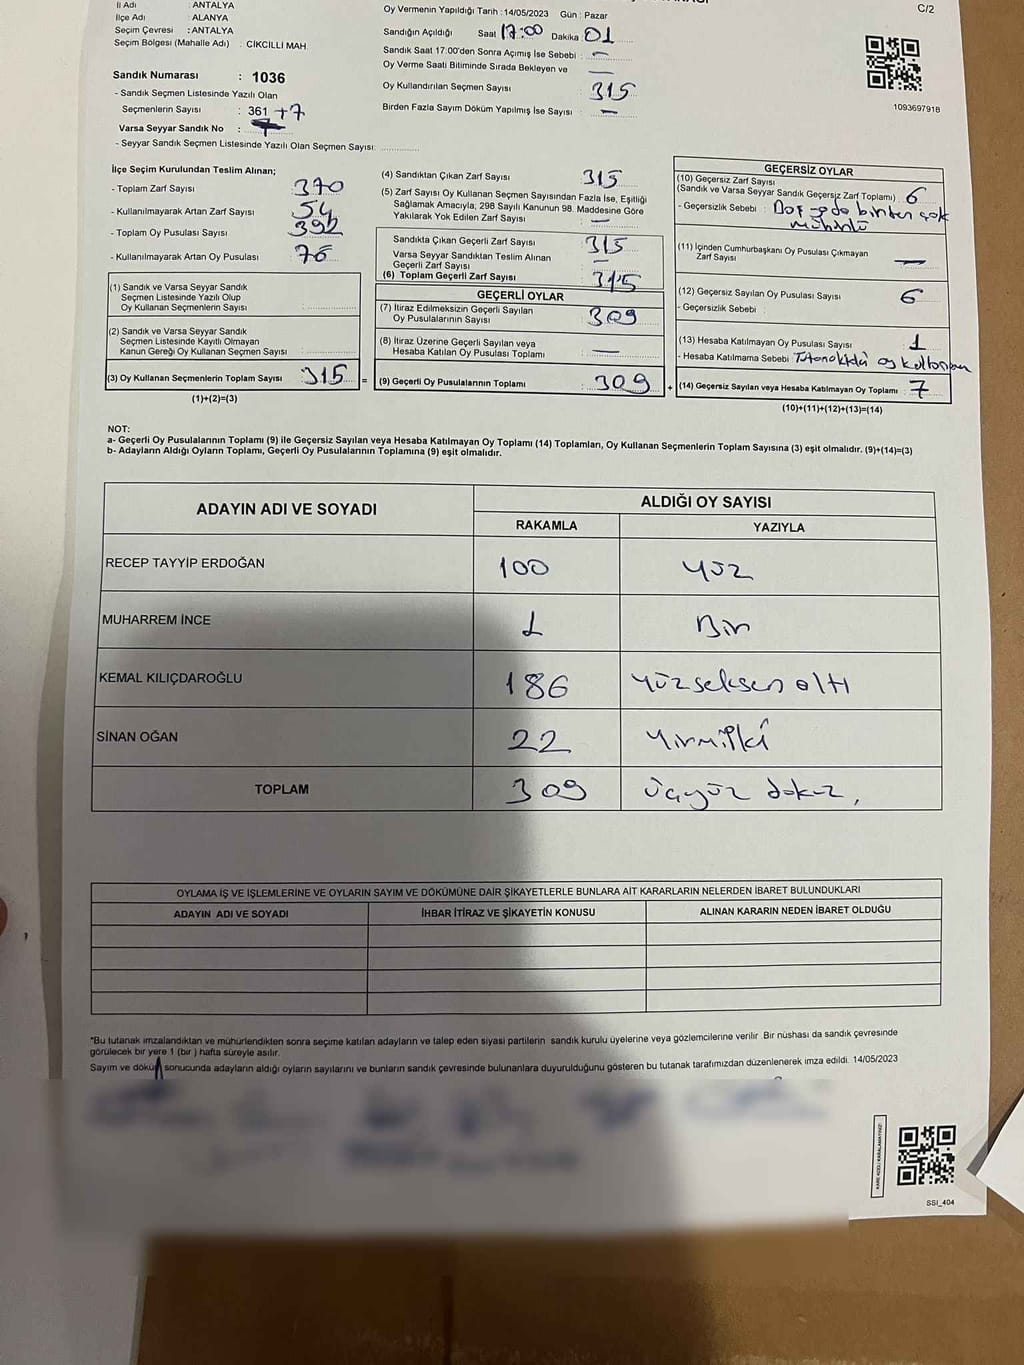 C/2
İl Adı : ANTALYA
İlçe Adı : ALANYA
Seçim Çevresi : ANTALYA
Seçim Bölgesi (Mahalle Adı) : CİKCİLLİ MAH.
Sandık Numarası : 1036
- Sandık Seçmen Listesinde Yazılı Olan
Seçmenlerin Sayısı : 361 +7
Varsa Seyyar Sandık No :
- Seyyar Sandık Seçmen Listesinde Yazılı Olan Seçmen Sayısı: ..............
Oy Vermenin Yapıldığı Tarih : 14/05/2023 Gün : Pazar
Sandığın Açıldığı Saat 17:00 Dakika 01
Sandık Saat 17:00'den Sonra Açımış İse Sebebi : —
Oy Verme Saati Bitiminde Sırada Bekleyen ve —
Oy Kullandırılan Seçmen Sayısı : 315
Birden Fazla Sayım Döküm Yapılmış İse Sayısı : —
1093697918
İlçe Seçim Kurulundan Teslim Alınan;
- Toplam Zarf Sayısı : 370
- Kullanılmayarak Artan Zarf Sayısı : 54
- Toplam Oy Pusulası Sayısı : 392
- Kullanılmayarak Artan Oy Pusulası : 76
(1) Sandık ve Varsa Seyyar Sandık
Seçmen Listesinde Yazılı Olup
Oy Kullanan Seçmenlerin Sayısı :
(2) Sandık ve Varsa Seyyar Sandık
Seçmen Listesinde Kayıtlı Olmayan
Kanun Gereği Oy Kullanan Seçmen Sayısı :
(3) Oy Kullanan Seçmenlerin Toplam Sayısı : 315 =
(1)+(2)=(3)
(4) Sandıktan Çıkan Zarf Sayısı : 315
(5) Zarf Sayısı Oy Kullanan Seçmen Sayısından Fazla İse, Eşitliği
Sağlamak Amacıyla; 298 Sayılı Kanunun 98. Maddesine Göre
Yakılarak Yok Edilen Zarf Sayısı : —
Sandıkta Çıkan Geçerli Zarf Sayısı : 315
Varsa Seyyar Sandıktan Teslim Alınan
Geçerli Zarf Sayısı : —
(6) Toplam Geçerli Zarf Sayısı : 315
GEÇERLİ OYLAR
(7) İtiraz Edilmeksizin Geçerli Sayılan
Oy Pusulalarının Sayısı : 309
(8) İtiraz Üzerine Geçerli Sayılan veya
Hesaba Katılan Oy Pusulası Toplamı : —
(9) Geçerli Oy Pusulalarının Toplamı : 309 +
GEÇERSİZ OYLAR
(10) Geçersiz Zarf Sayısı
(Sandık ve Varsa Seyyar Sandık Geçersiz Zarf Toplamı) : 6
- Geçersizlik Sebebi : birden çok
mühürlü
(11) İçinden Cumhurbaşkanı Oy Pusulası Çıkmayan
Zarf Sayısı : —
(12) Geçersiz Sayılan Oy Pusulası Sayısı : 6
- Geçersizlik Sebebi :
(13) Hesaba Katılmayan Oy Pusulası Sayısı : 1
- Hesaba Katılmama Sebebi : oy
(14) Geçersiz Sayılan veya Hesaba Katılmayan Oy Toplamı : 7
(10)+(11)+(12)+(13)=(14)
NOT:
a- Geçerli Oy Pusulalarının Toplamı (9) ile Geçersiz Sayılan veya Hesaba Katılmayan Oy Toplamı (14) Toplamları, Oy Kullanan Seçmenlerin Toplam Sayısına (3) eşit olmalıdır. (9)+(14)=(3)
b- Adayların Aldığı Oyların Toplamı, Geçerli Oy Pusulalarının Toplamına (9) eşit olmalıdır.
ADAYIN ADI VE SOYADI
ALDIĞI OY SAYISI
RAKAMLA YAZIYLA
RECEP TAYYİP ERDOĞAN 100 Yüz
MUHARREM İNCE 1 Bir
KEMAL KILIÇDAROĞLU 186 Yüzseksen altı
SİNAN OĞAN 22 Yirmiİki
TOPLAM 309 üçyüz dokuz,
OYLAMA İŞ VE İŞLEMLERİNE VE OYLARIN SAYIM VE DÖKÜMÜNE DAİR ŞİKAYETLERLE BUNLARA AİT KARARLARIN NELERDEN İBARET BULUNDUKLARI
ADAYIN ADI VE SOYADI İHBAR İTİRAZ VE ŞİKAYETİN KONUSU ALINAN KARARIN NEDEN İBARET OLDUĞU
*Bu tutanak imzalandıktan ve mühürlendikten sonra seçime katılan adayların ve talep eden siyasi partilerin sandık kurulu üyelerine veya gözlemcilerine verilir. Bir nüshası da sandık çevresinde
görülecek bir yere 1 (bir ) hafta süreyle asılır.
Sayım ve döküm sonucunda adayların aldığı oyların sayılarını ve bunların sandık çevresinde bulunanlara duyurulduğunu gösteren bu tutanak tarafımızdan düzenlenerek imza edildi. 14/05/2023
KARE KODU KARALAMAYINIZ!
SSI_404